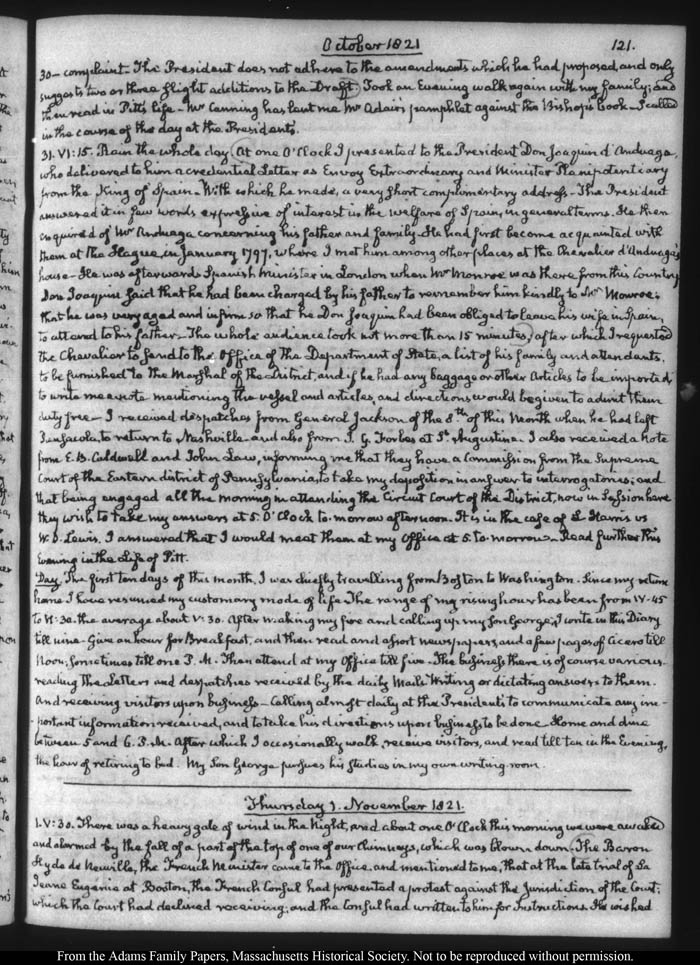 October 1821
121.
30— complaint. The President does not adhere to the amendments which he had proposed, and only
suggests two or three slight additions to the Draft. Took an Evening walk again with my family; and
then read in Pitt's life— Mr Canning has lent me Mr Adair's pamphlet against the Bishop's Book— I called
in the course of the day at the Presidents.
31. VI:15. Rain the whole day. At one O'Clock I presented to the President Don Joaquin d'Anduaga,
who delivered to him a credential Letter as Envoy Extraordinary and Minister Plenipotentiary
from the King of Spain— With which he made, a very short complimentary address— The President
answered it in few words expressive of interest in the welfare of Spain, in general terms. He then
enquired of Mr Anduaga concerning his father and family— He had first become acquainted with
them at The Hague, in January 1797, where I met him among other places at the Chevalier d'Anduaga's
house— He was afterwards Spanish Minister in London when Mr Monroe was there from this Country
Don Joaquin said that he had been charged by his father to remember him kindly to Mr Monroe;
that he was very aged and infirm so that he Don Joaquin had been obliged to leave his wife in Spain,
to attend to his father. The whole audience took not more than 15 minutes, after which I requested
the Chevalier to send to the Office of the Department of State, a list of his family and attendants,
to be furnished to the Marshal of the District, and if he had any baggage or other Articles to be imported
to write me a note mentioning the vessel and articles, and directions would be given to admit them
duty free— I received despatches from General Jackson of the 8.th of this Month when he had left
Pensacola, to return to Nashville— and also from J. G. Forbes at St Augustine. I also received a Note
from E. B. Caldwell and John Law, informing me that they have a Commission from the Supreme
Court of the Eastern district of Pennsylvania, to take my deposition in answer to interrogatories; and
that being engaged all the morning in attending the Circuit Court of the District, now in Session here
they wish to take my answers at 5. O'Clock to-morrow afternoon. It is in the case of L Harris vs
W. D. Lewis. I answered that I would meet them at my Office at 5 to-morrow— Read further this
Evening in the Life of Pitt.
Day. The first ten days of this month, I was chiefly travelling from Boston to Washington. Since my return
home I have resumed my customary mode of life. The range of my rising hour has been from IV-45
to VI:30. the average about V:30. After making my fire and calling up my Son George, I write in this Diary
till nine. Give an hour for Breakfast, and then read and assort newspapers, and a few pages of Cicero till
Noon; sometimes till one P.M. Then attend at my Office till five— The business there is of course various.
reading the Letters and despatches received by the daily Mails Writing or dictating answers to them.
And receiving visitors upon business— Calling almost daily at the Presidents to communicate any im-
-portant information received, and to take his directions upon business to be done— Home and dine
between 5 and 6. P.M. After which I occasionally walk, receive visitors, and read till ten in the Evening,
the hour of retiring to bed. My Son George pursues his studies in my own writing room.
Thursday 1. November 1821.
1. V:30. There was a heavy gale of wind in the Night, and about one O'Clock this morning we were awaked
and alarmed by the fall of a part of the top of one of our Chimneys, which was blown down— The Baron
Hyde de Neuville, the French Minister came to the Office, and mentioned to me, that at the late trial of La
Jeune Eugenie at Boston, the French Consul had presented a protest against the Jurisdiction of the Court;
which the Court had declined receiving; and the Consul had written to him for Instructions. He wished
From the Adams Family Papers, Massachusetts Historical Society. Not to be reproduced without permission.